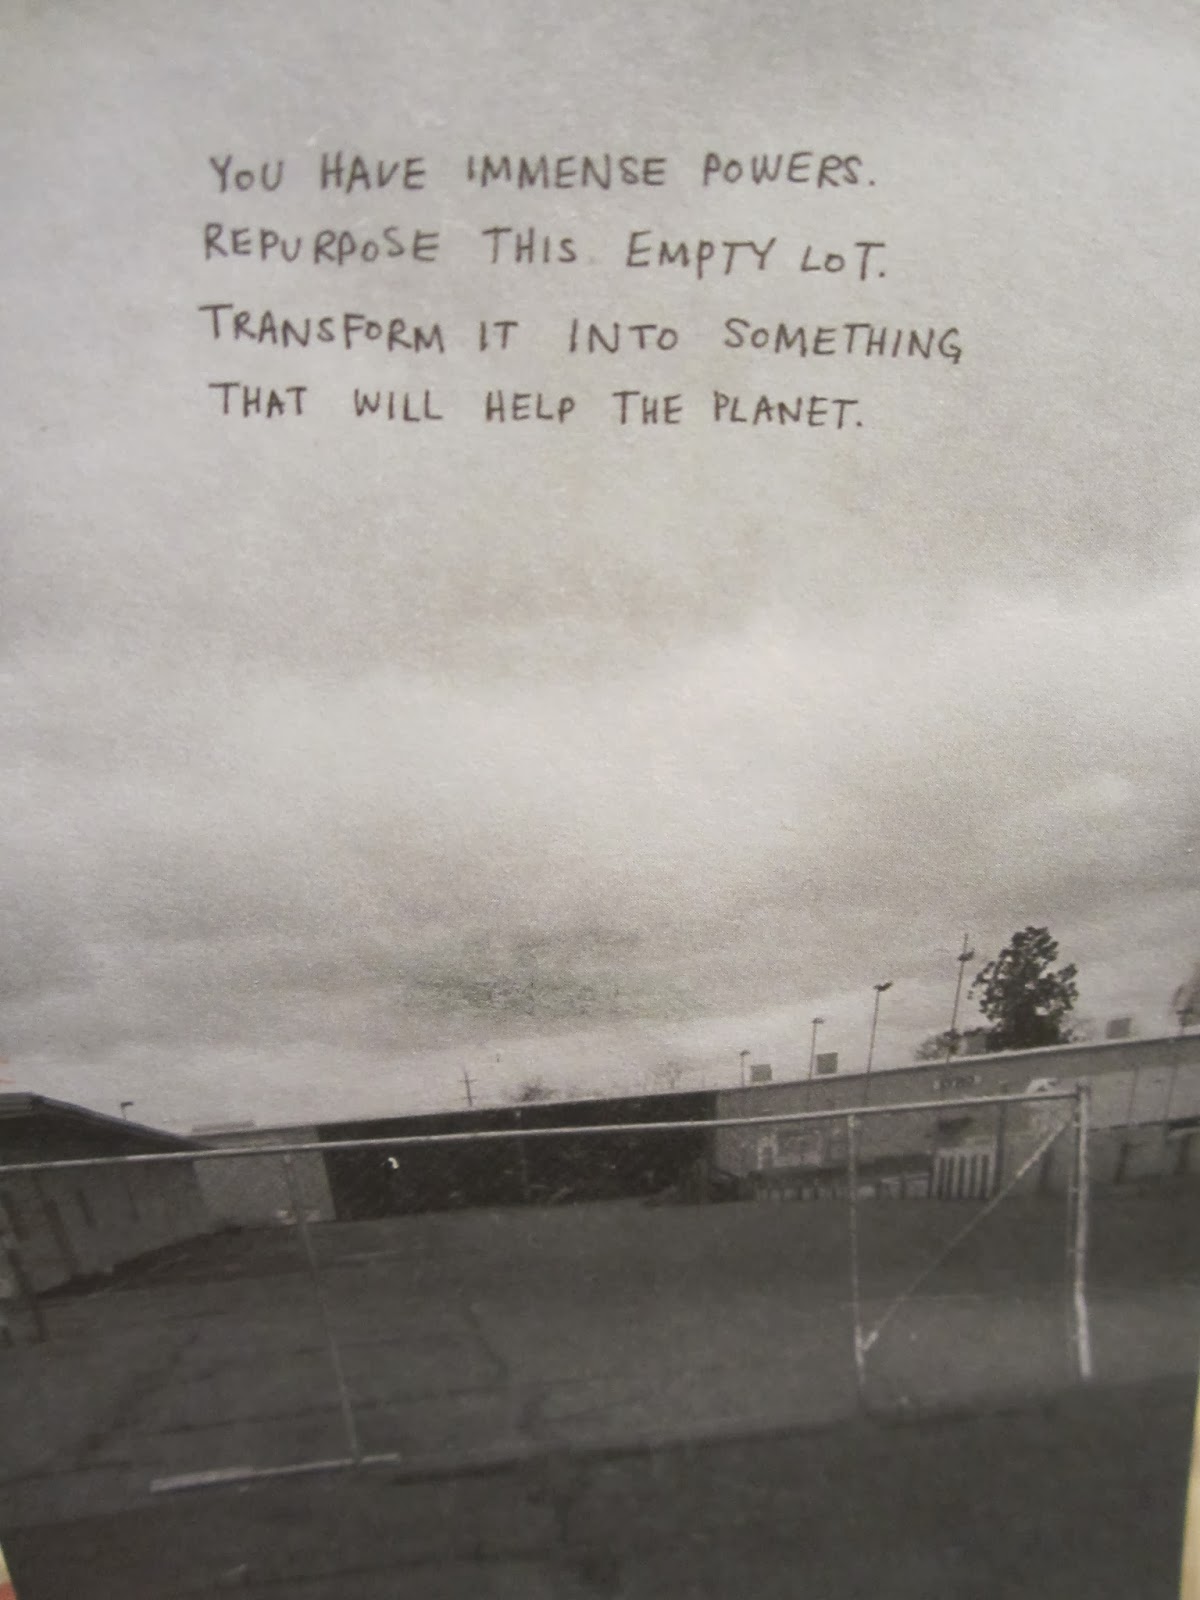 YOU HAVE IMMENSE POWERS.
REPURPOSE THIS EMPTY LOT.
TRANSFORM IT INTO SOMETHING
THAT WILL HELP THE PLANET.